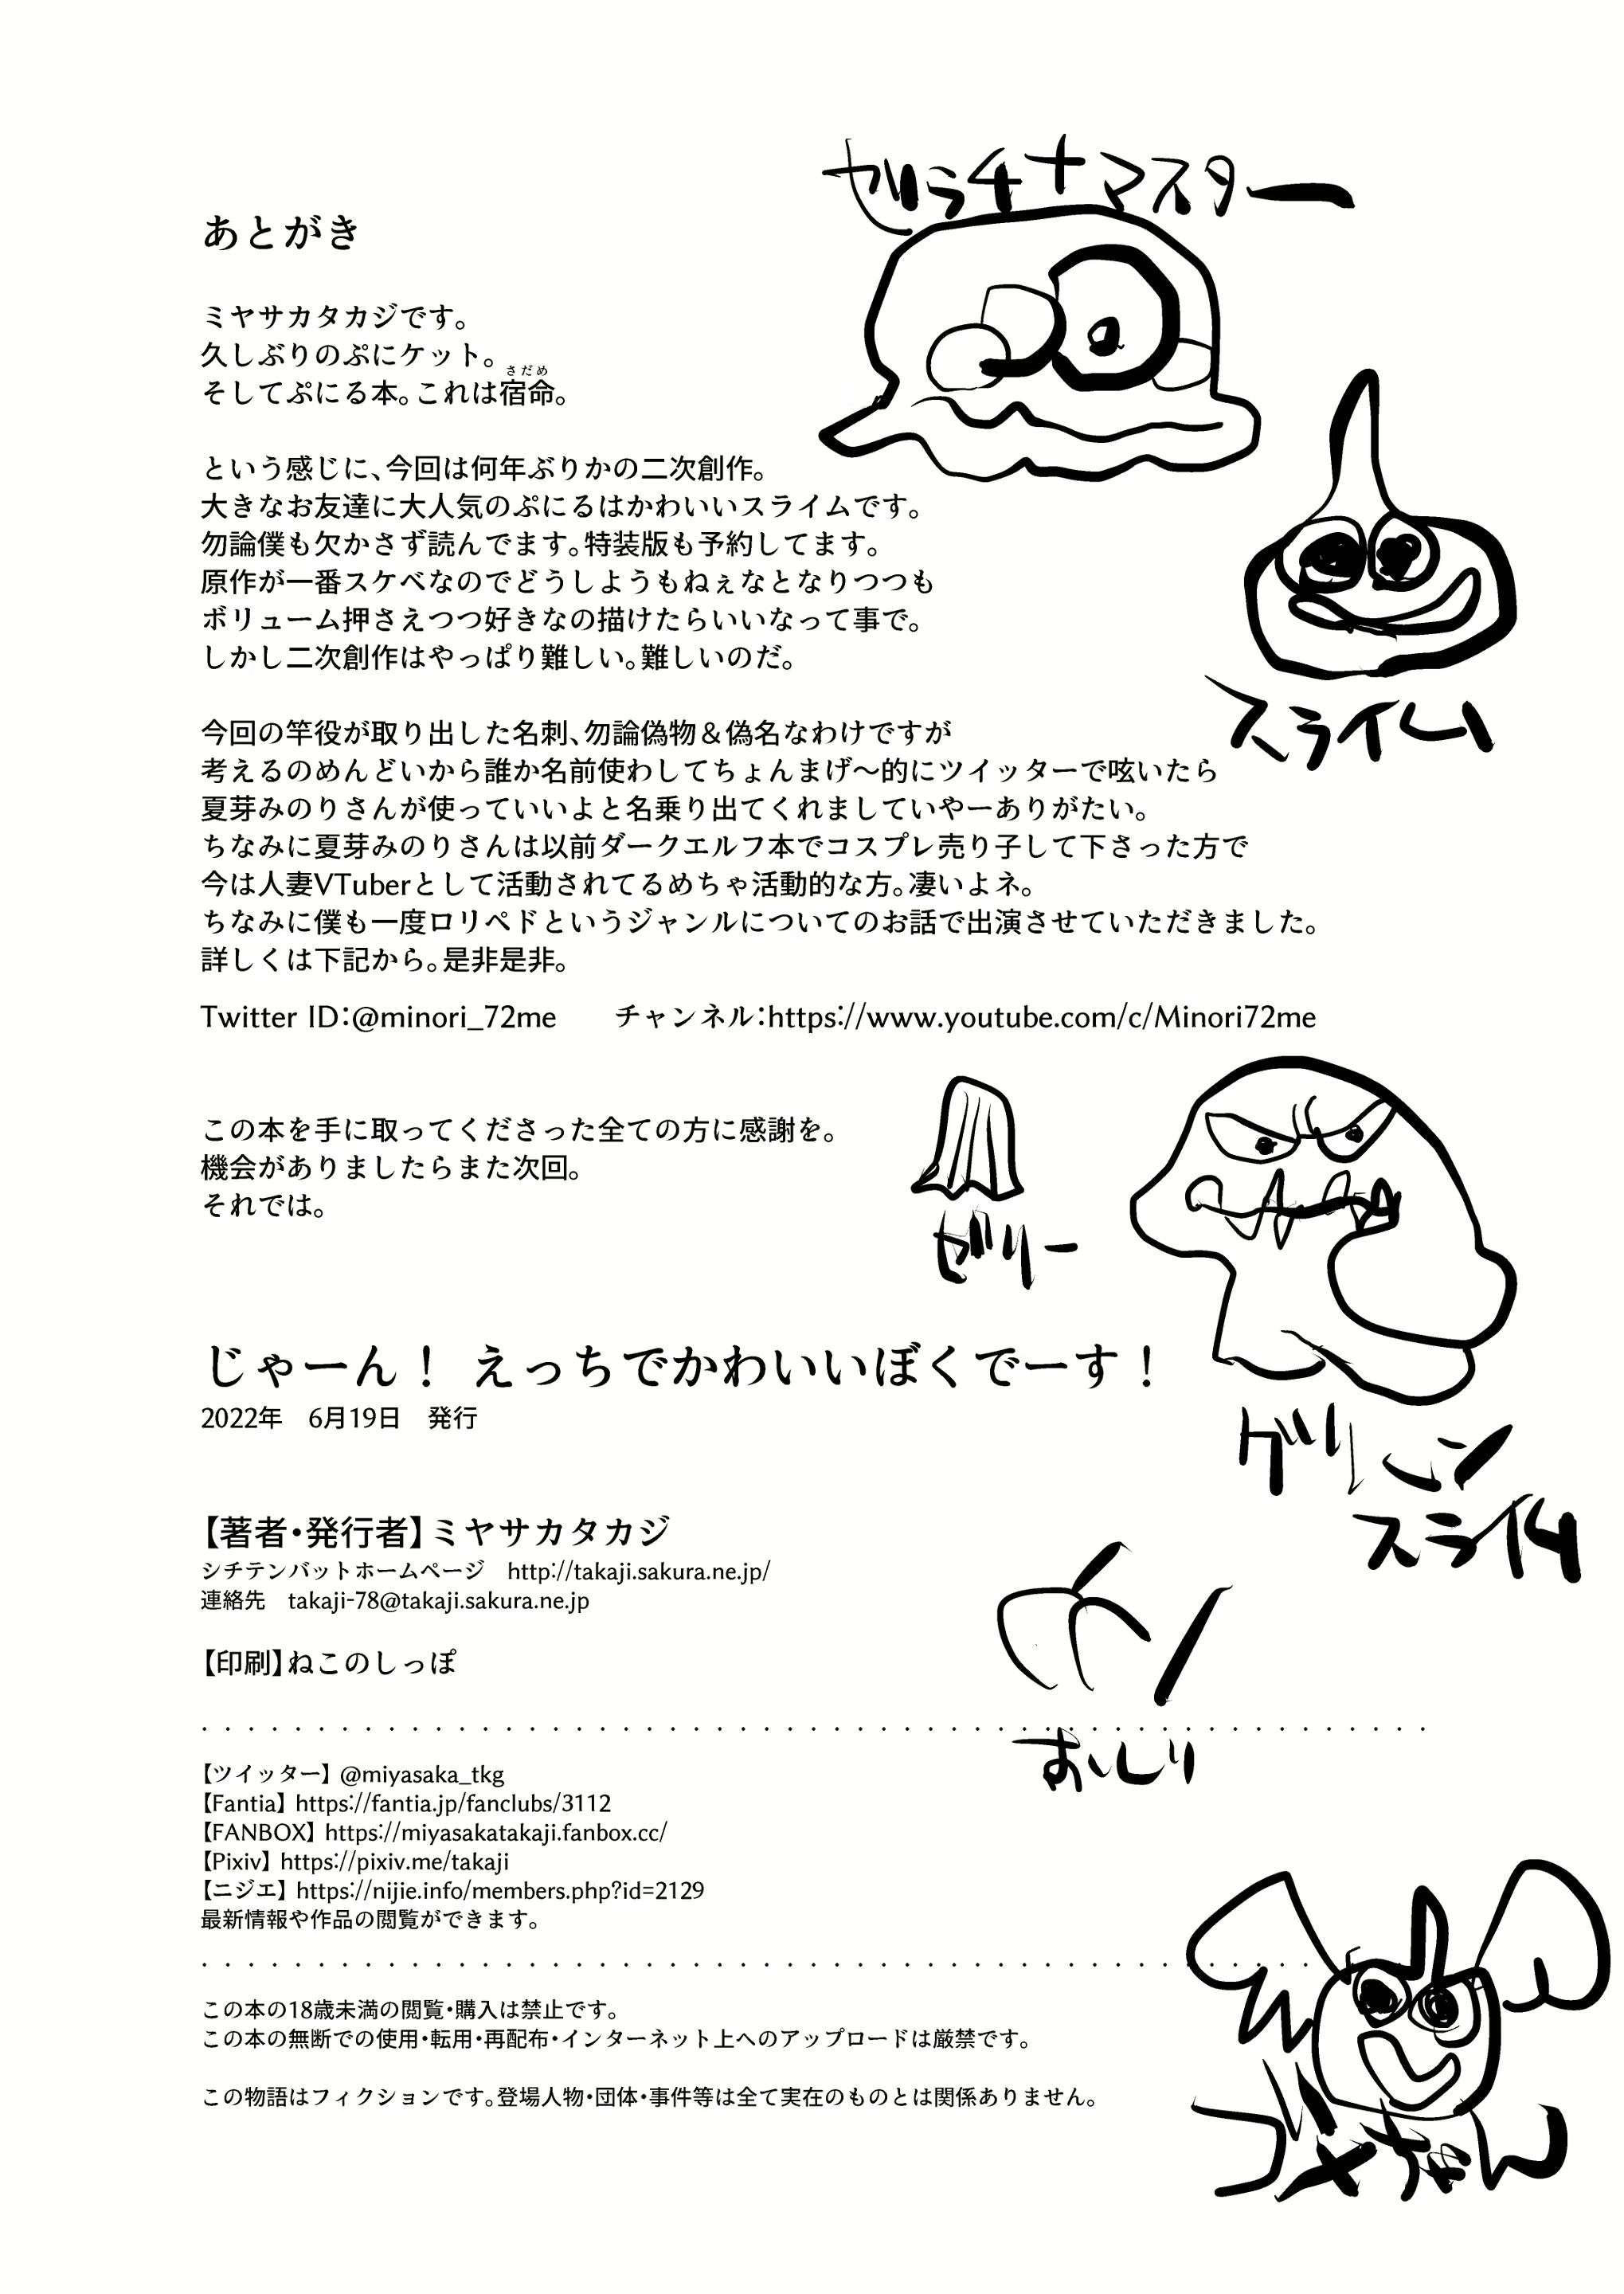 ゼラチナマスター
あとがき
ミヤサカタカジです。
久しぶりのぷにケット。
そしてぷにる本。これは宿命。
さだめ
という感じに、今回は何年ぶりかの二次創作。
大きなお友達に大人気のぷにるはかわいいスライムです。
勿論僕も欠かさず読んでます。特装版も予約してます。
原作が一番スケベなのでどうしようもねぇなとなりつつも
ボリューム押さえつつ好きなの描けたらいいなって事で。
しかし二次創作はやっぱり難しい。難しいのだ。
スライム
今回の竿役が取り出した名刺、勿論偽物＆偽名なわけですが
考えるのめんどいから誰か名前使わしてちょんまげ～的にツイッターで呟いたら
夏芽みのりさんが使っていいよと名乗り出てくれましていやーありがたい。
ちなみに夏芽みのりさんは以前ダークエルフ本でコスプレ売り子して下さった方で
今は人妻VTuberとして活動されてるめちゃ活動的な方。凄いよネ。
ちなみに僕も一度ロリペドというジャンルについてのお話で出演させていただきました。
詳しくは下記から。是非是非。
Twitter ID：@minori_72me　　チャンネル：https://www.youtube.com/c/Minori72me
この本を手に取ってくださった全ての方に感謝を。
機会がありましたらまた次回。
それでは。
ゼリー
じゃーん！ えっちでかわいいぼくでーす！
2022年　6月19日　発行
グリーン
スライム
【著者・発行者】ミヤサカタカジ
シチテンバットホームページ　http://takaji.sakura.ne.jp/
連絡先　takaji-78@takaji.sakura.ne.jp
【印刷】ねこのしっぽ
おしり
【ツイッター】 @miyasaka_tkg
【Fantia】 https://fantia.jp/fanclubs/3112
【FANBOX】 https://miyasakatakaji.fanbox.cc/
【Pixiv】 https://pixiv.me/takaji
【ニジエ】 https://nijie.info/members.php?id=2129
最新情報や作品の閲覧ができます。
この本の18歳未満の閲覧・購入は禁止です。
この本の無断での使用・転用・再配布・インターネット上へのアップロードは厳禁です。
この物語はフィクションです。登場人物・団体・事件等は全て実在のものとは関係ありません。
ゴメちゃん